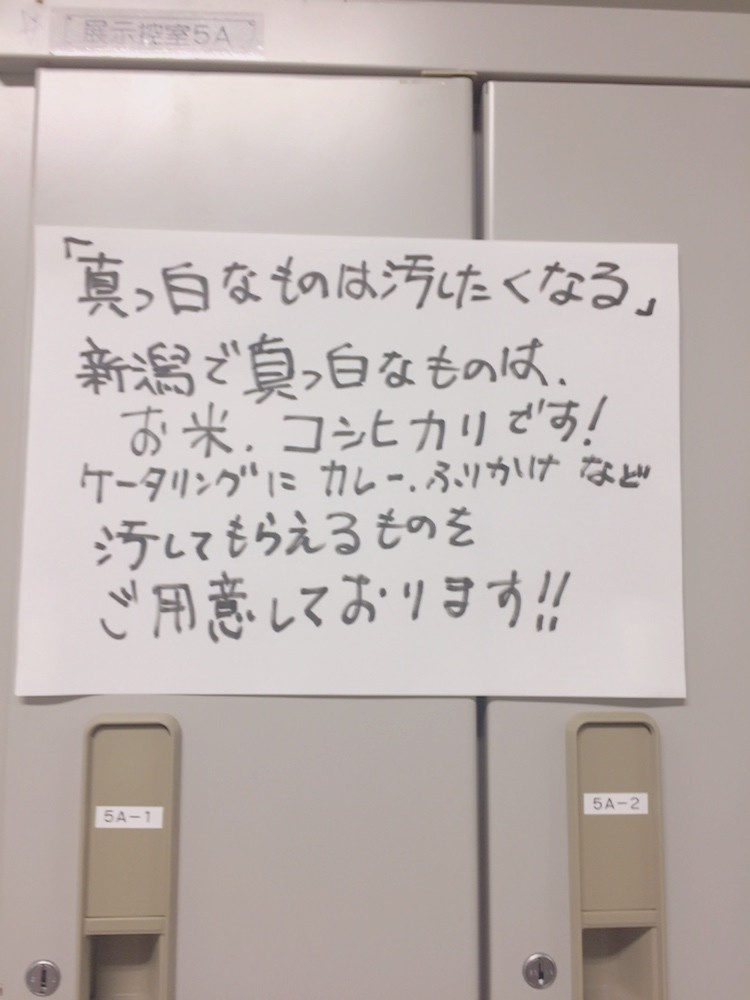 展示控室5A
「真っ白なものは汚したくなる」
新潟で真っ白なものは、
お米、コシヒカリです!
ケータリングに カレー、ふりかけ など
汚してもらえるものを
ご用意しております!!
5A-1
5A-2